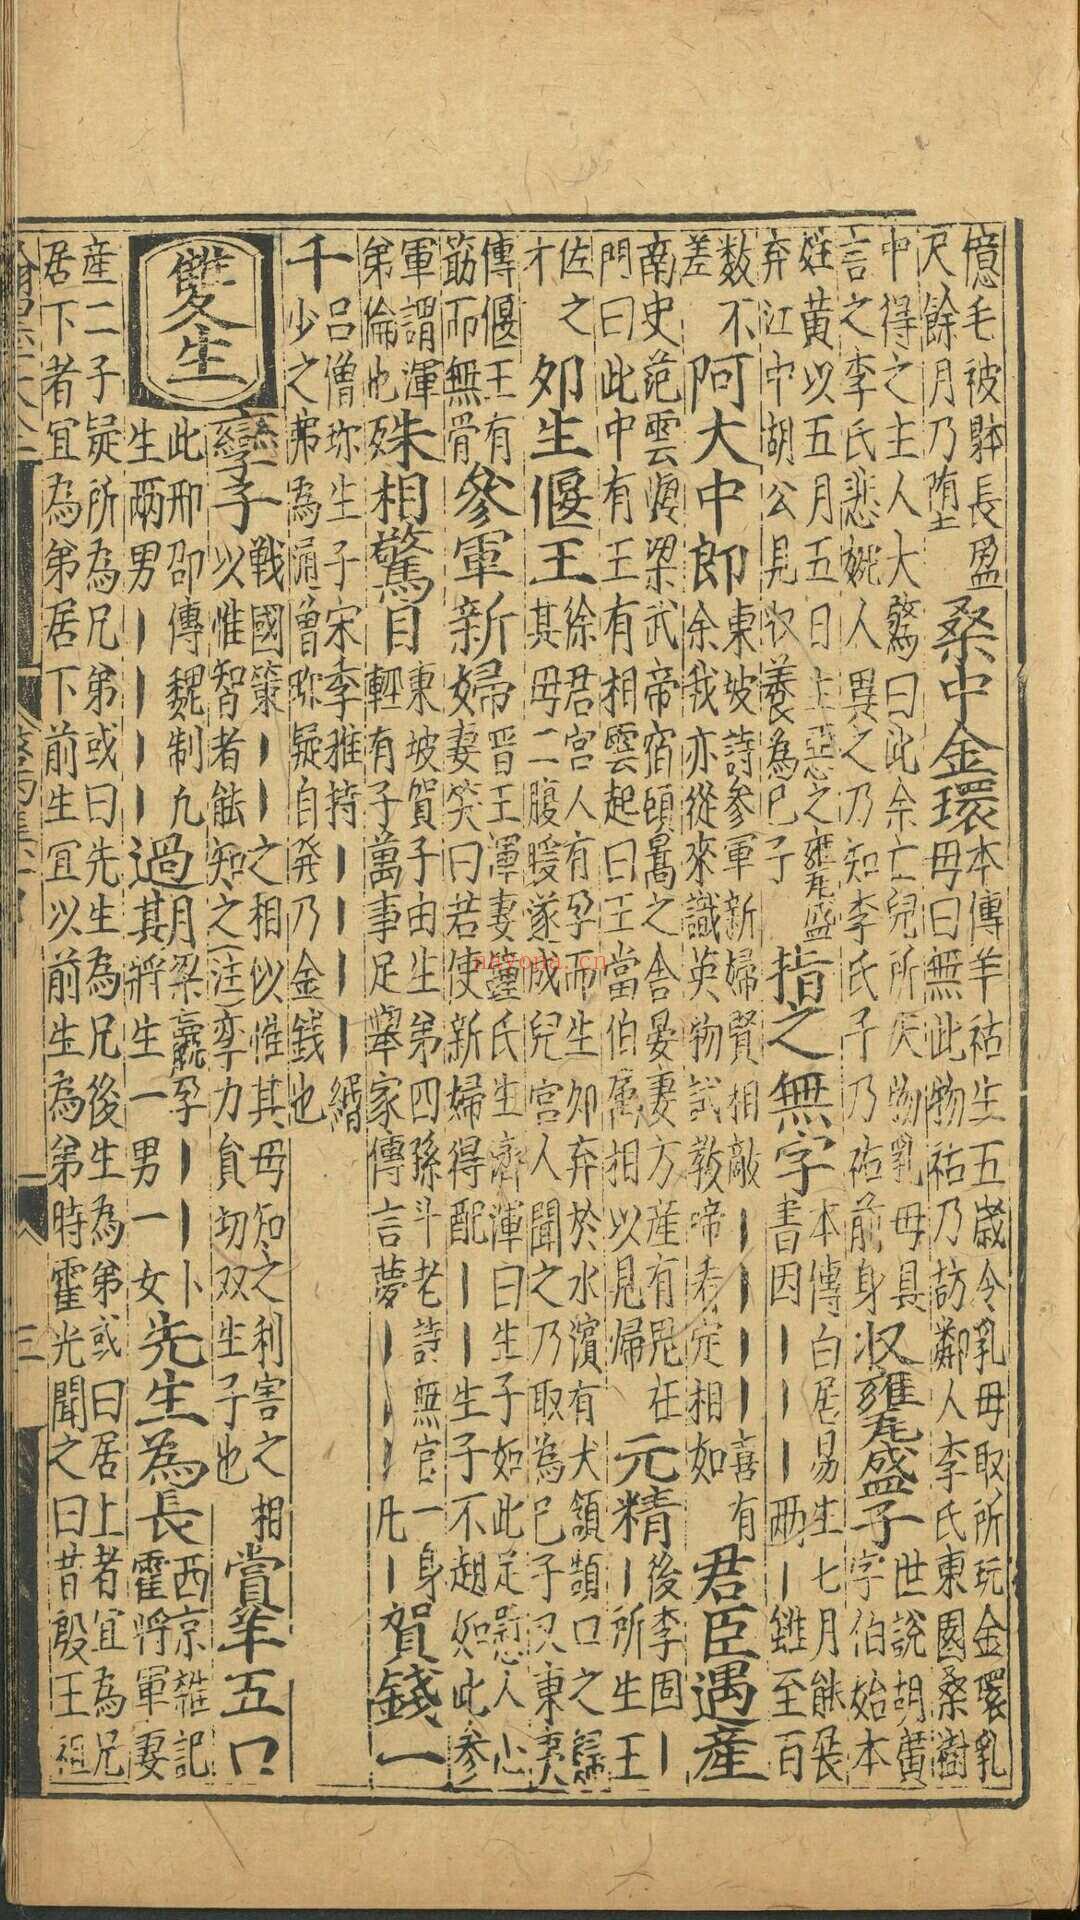 憶毛被躰長盈
尺餘月乃墮
桑中金環
本傳羊祜生五歲令乳母取所玩金環乳
母曰無此物祜乃詣鄰人李氏東國桑樹
中得之主人大驚曰此余亡兒所失物乳母具
言之李氏悲婉人異之乃知李氏子乃祜前身
收雍瓦盛子
世說胡廣
字伯始本
姓黃以五月五日生惡之雍瓦盛
弃江中胡公見收養為已子
指之無字
本傳白居易生七月能展
書因||||兩|雖至百
數不
差
阿大中郎
東坡詩參軍新婦賢相敵||||喜有
余我亦從來識英物試教啼看定相如
君臣遇產
南史范雲梁武帝宿顧暠之舍晏妻方産有鬼在
門曰此中有王有相雲起曰王當伯厲相以見歸
元精
後李固|
|所生王
佐之
才
夘生偃王
徐君宮人有孕而生夘弃於水濱有犬頷口之歸
其母二腹暖遂成兒宮人聞之乃取為已子只東夷
傳偃王有
筋而無骨
參軍新婦
晋王渾妻鍾氏生濟渾曰生子如此足慰人心
妻笑曰若使新婦得配||生子不趐如此參
軍謂渾
弟倫也
殊相驚目
東坡賀子由生第四孫斗老詩無官一身
輕有子萬事足舉家傳言夢||||凡|
賀錢一
千
呂僧珎生子宋季雅持||||緡
少之弗為通僧珎疑自發乃金錢也
雙生
孿子
戰國策||之相似惟其母知之利害之相
以惟智者能知之(注)孿力員切双生子也
賞羊五口
此邢邵傳魏制九
生兩男||||
過
月梁嬴孕||卜
其將生一男一女
先生為長
西京雜記
霍將軍妻
産二子疑所為兄弟或曰先生為兄後生為弟或曰居上者宜為兄
居下者宜為弟居下前生宜以前生為弟時霍光聞之曰昔殷王祖
三
nhyona.cn